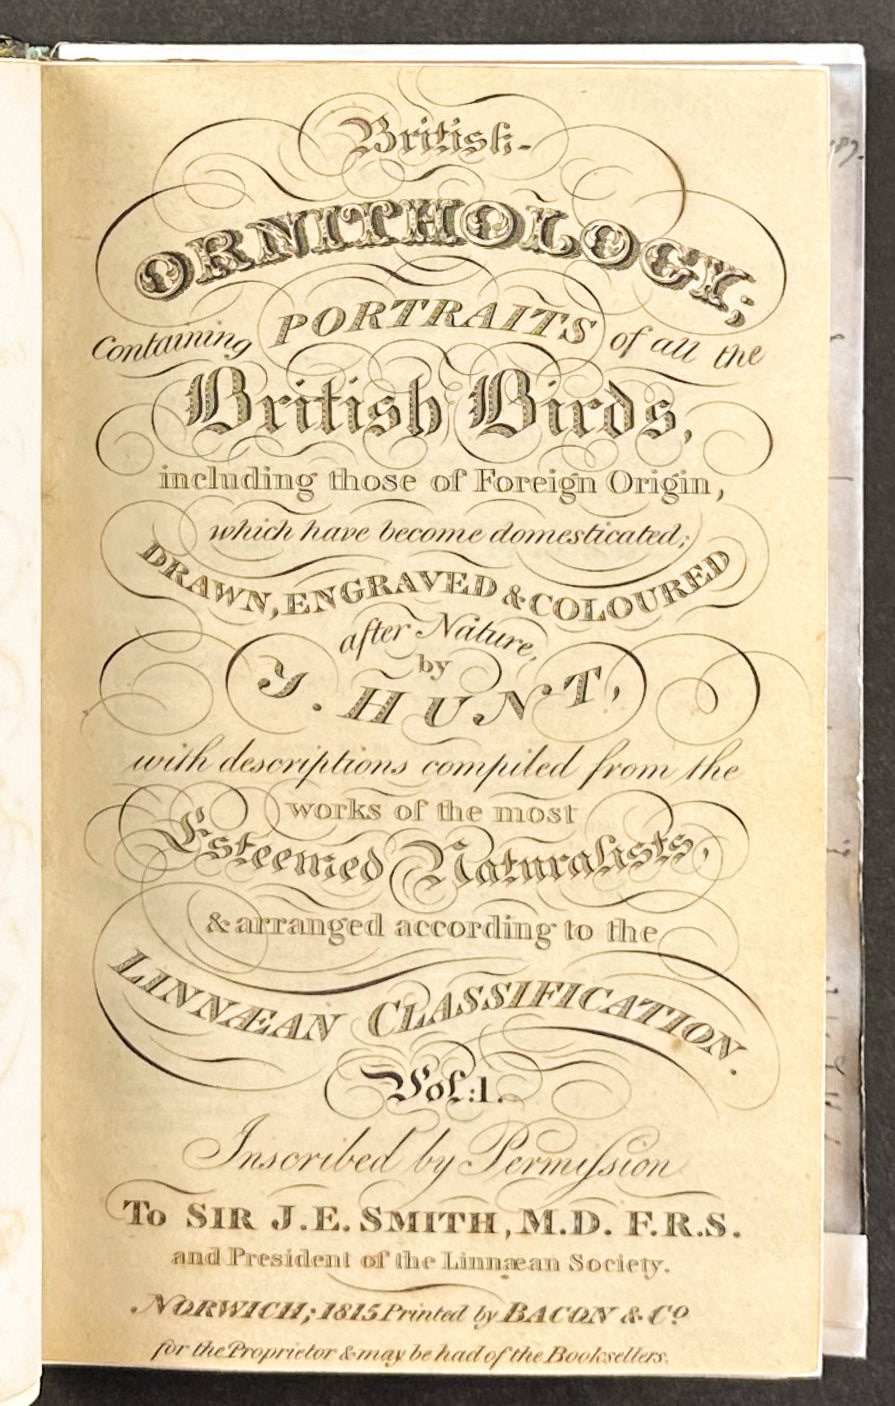 British
ORNITHOLOGY;
Containing PORTRAITS of all the
British Birds,
including those of Foreign Origin,
which have become domesticated;
DRAWN, ENGRAVED & COLOURED
after Nature,
by
J. HUNT,
with descriptions compiled from the
works of the most
Esteemed Naturalists,
& arranged according to the
LINNÆAN CLASSIFICATION.
Vol: 1.
Inscribed by Permiſsion
To SIR J. E. SMITH, M.D. F.R.S.
and President of the Linnæan Society.
NORWICH; 1815 Printed by BACON & Co
for the Proprietor & may be had of the Booksellers.